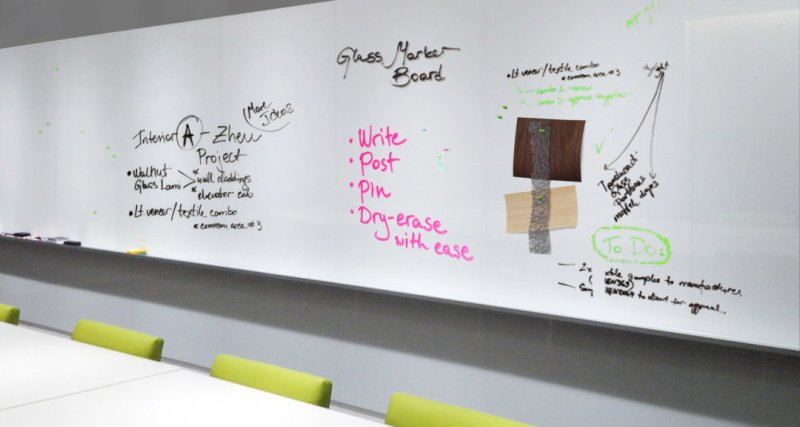 Glass Marker
Board
More
Ideas
Interior A - Zhen
Project
• Walnut * wall claddings
Glass Lami * elevator cab
• Lt veneer/textile combo
* common area #3
• Write
• Post
• Pin
• Dry-erase
with ease
• Lt veneer/textile combo
* common area #3
combo 1 -
combo 2 - approve
Glass
To Do:
samples to manufactures
to client for approval.